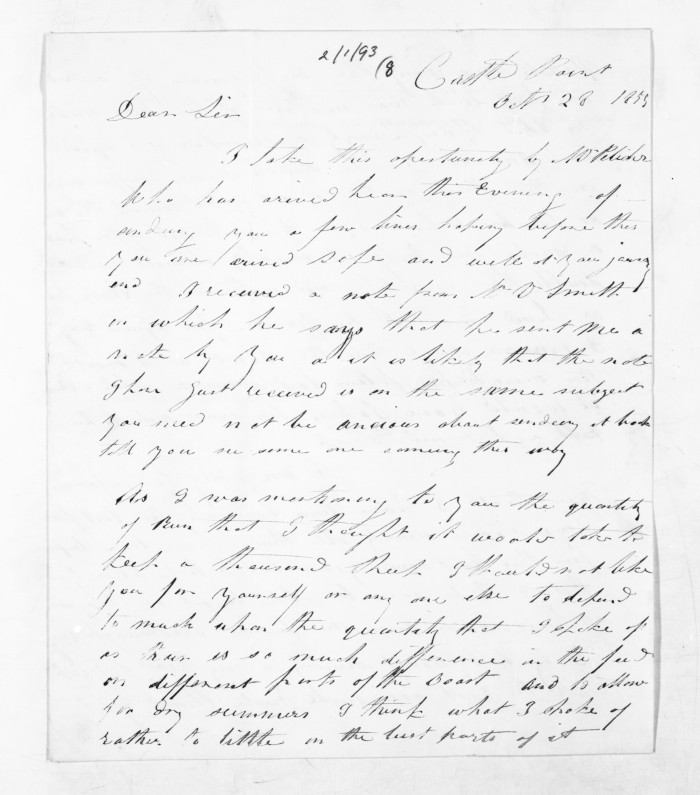 2/1/93
(8
Castle Point
Octr 28 1855
Dear Sir
I take this opertunity by Mr
Who has arived hear this Evening of
sending you a few lines hoping before this
you are arived safe and well at your journy
end I received a note from Mr D Smith
in which he says that he sent me a
note by you as it is likely that the note
I have just received is on the same subject
you need not be ancious about sending it back
till you se some one coming this way
As I was mentioning to you the quantity
of Run that I thought it would take to
keep a thousand Sheep I should not like
you for yourself or any one else to depend
to much upon the quantity that I spoke of
as thair is so much difference in the feed
on different parts of the Coast and to allow
for dry summers I think what I spoke of
rather to little on the best parts of it